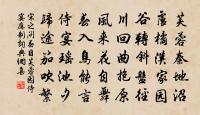 芙蓉秦地沼
盧橘漢家園
谷轉斜盤徑
川回曲抱原
風來花自舞
春入鳥能言
侍宴瑤池夕
歸途笳吹繁
宋之問春日芙蓉園侍
宴應制詞典網集